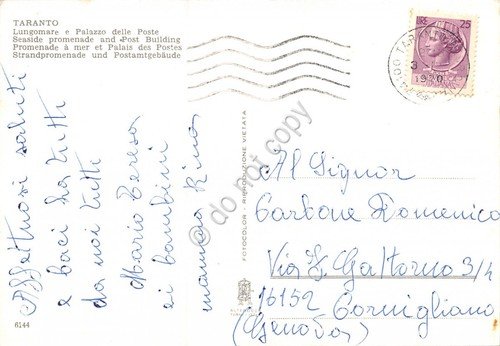 TARANTO
Lungomare e Palazzo delle Poste
Seaside promenade and Post Building
Promenade à mer et Palais des Postes
Strandpromenade und Postamtgebäude
Affettuosi saluti
e baci da tutti
da noi tutti
Mario Teresa
ei bambini
mamma Rina
6144
FOTOCOLOR - RIPRODUZIONE VIETATA
LIRE 25
74100 TARANTO
Al Signor
Carbone Domenico
Via G. Gattorno 3/4
16152 Cornigliano
(Genova)
© do not copy